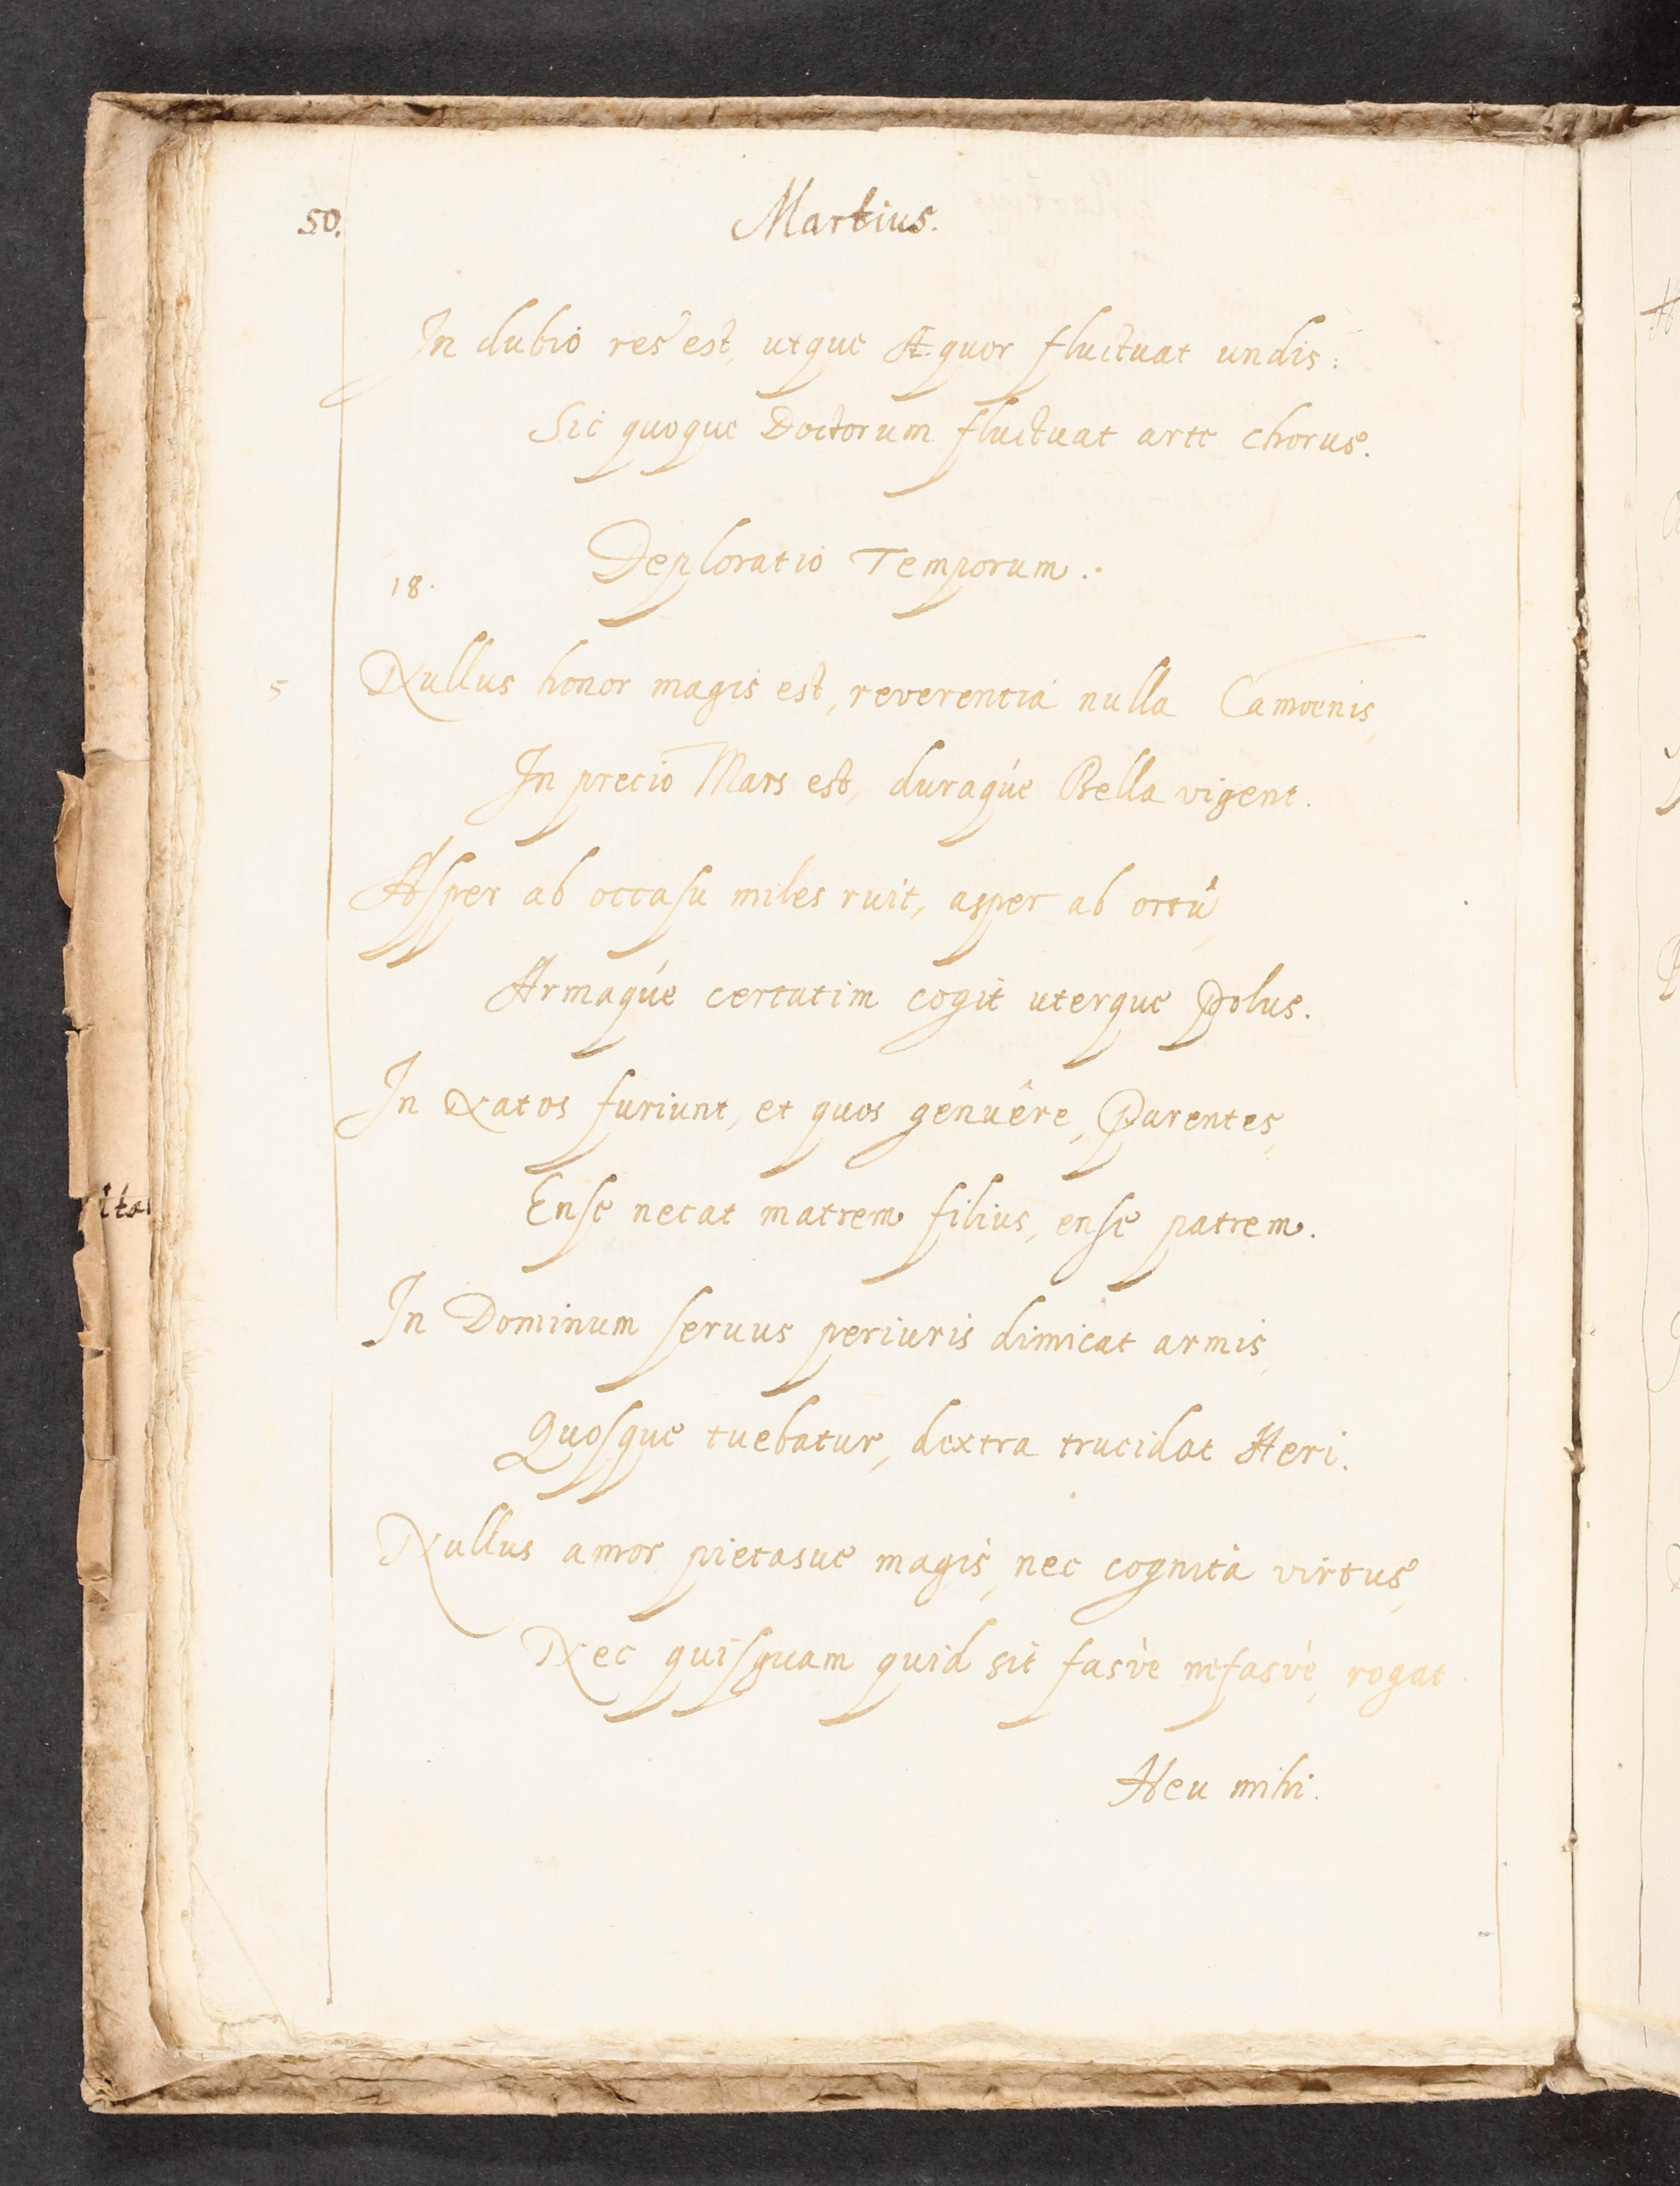 50.
Martius.
In dubio res est, utque Æquor fluctuat undis:
Sic quoque Doctorum fluctuat arte chorus.
Deploratio Temporum.
18.
5
Nullus honor magis est, reverentia nulla Camoenis,
In precio Mars est, duraqúe Bella vigent.
Asper ab occasu miles ruit, asper ab ortû,
Armaqúe certatim cogit uterque Polus.
In Natos furiunt, et quos genuêre, Parentes,
Ense necat matrem filius, ense patrem.
In Dominum seruus periuris dimicat armis,
Quosque tuebatur, dextra trucidat Heri.
Nullus amor pietasue magis, nec cognita virtus,
Nec quisquam quid sit fasvè nefasvè, rogat.
Heu mihi.